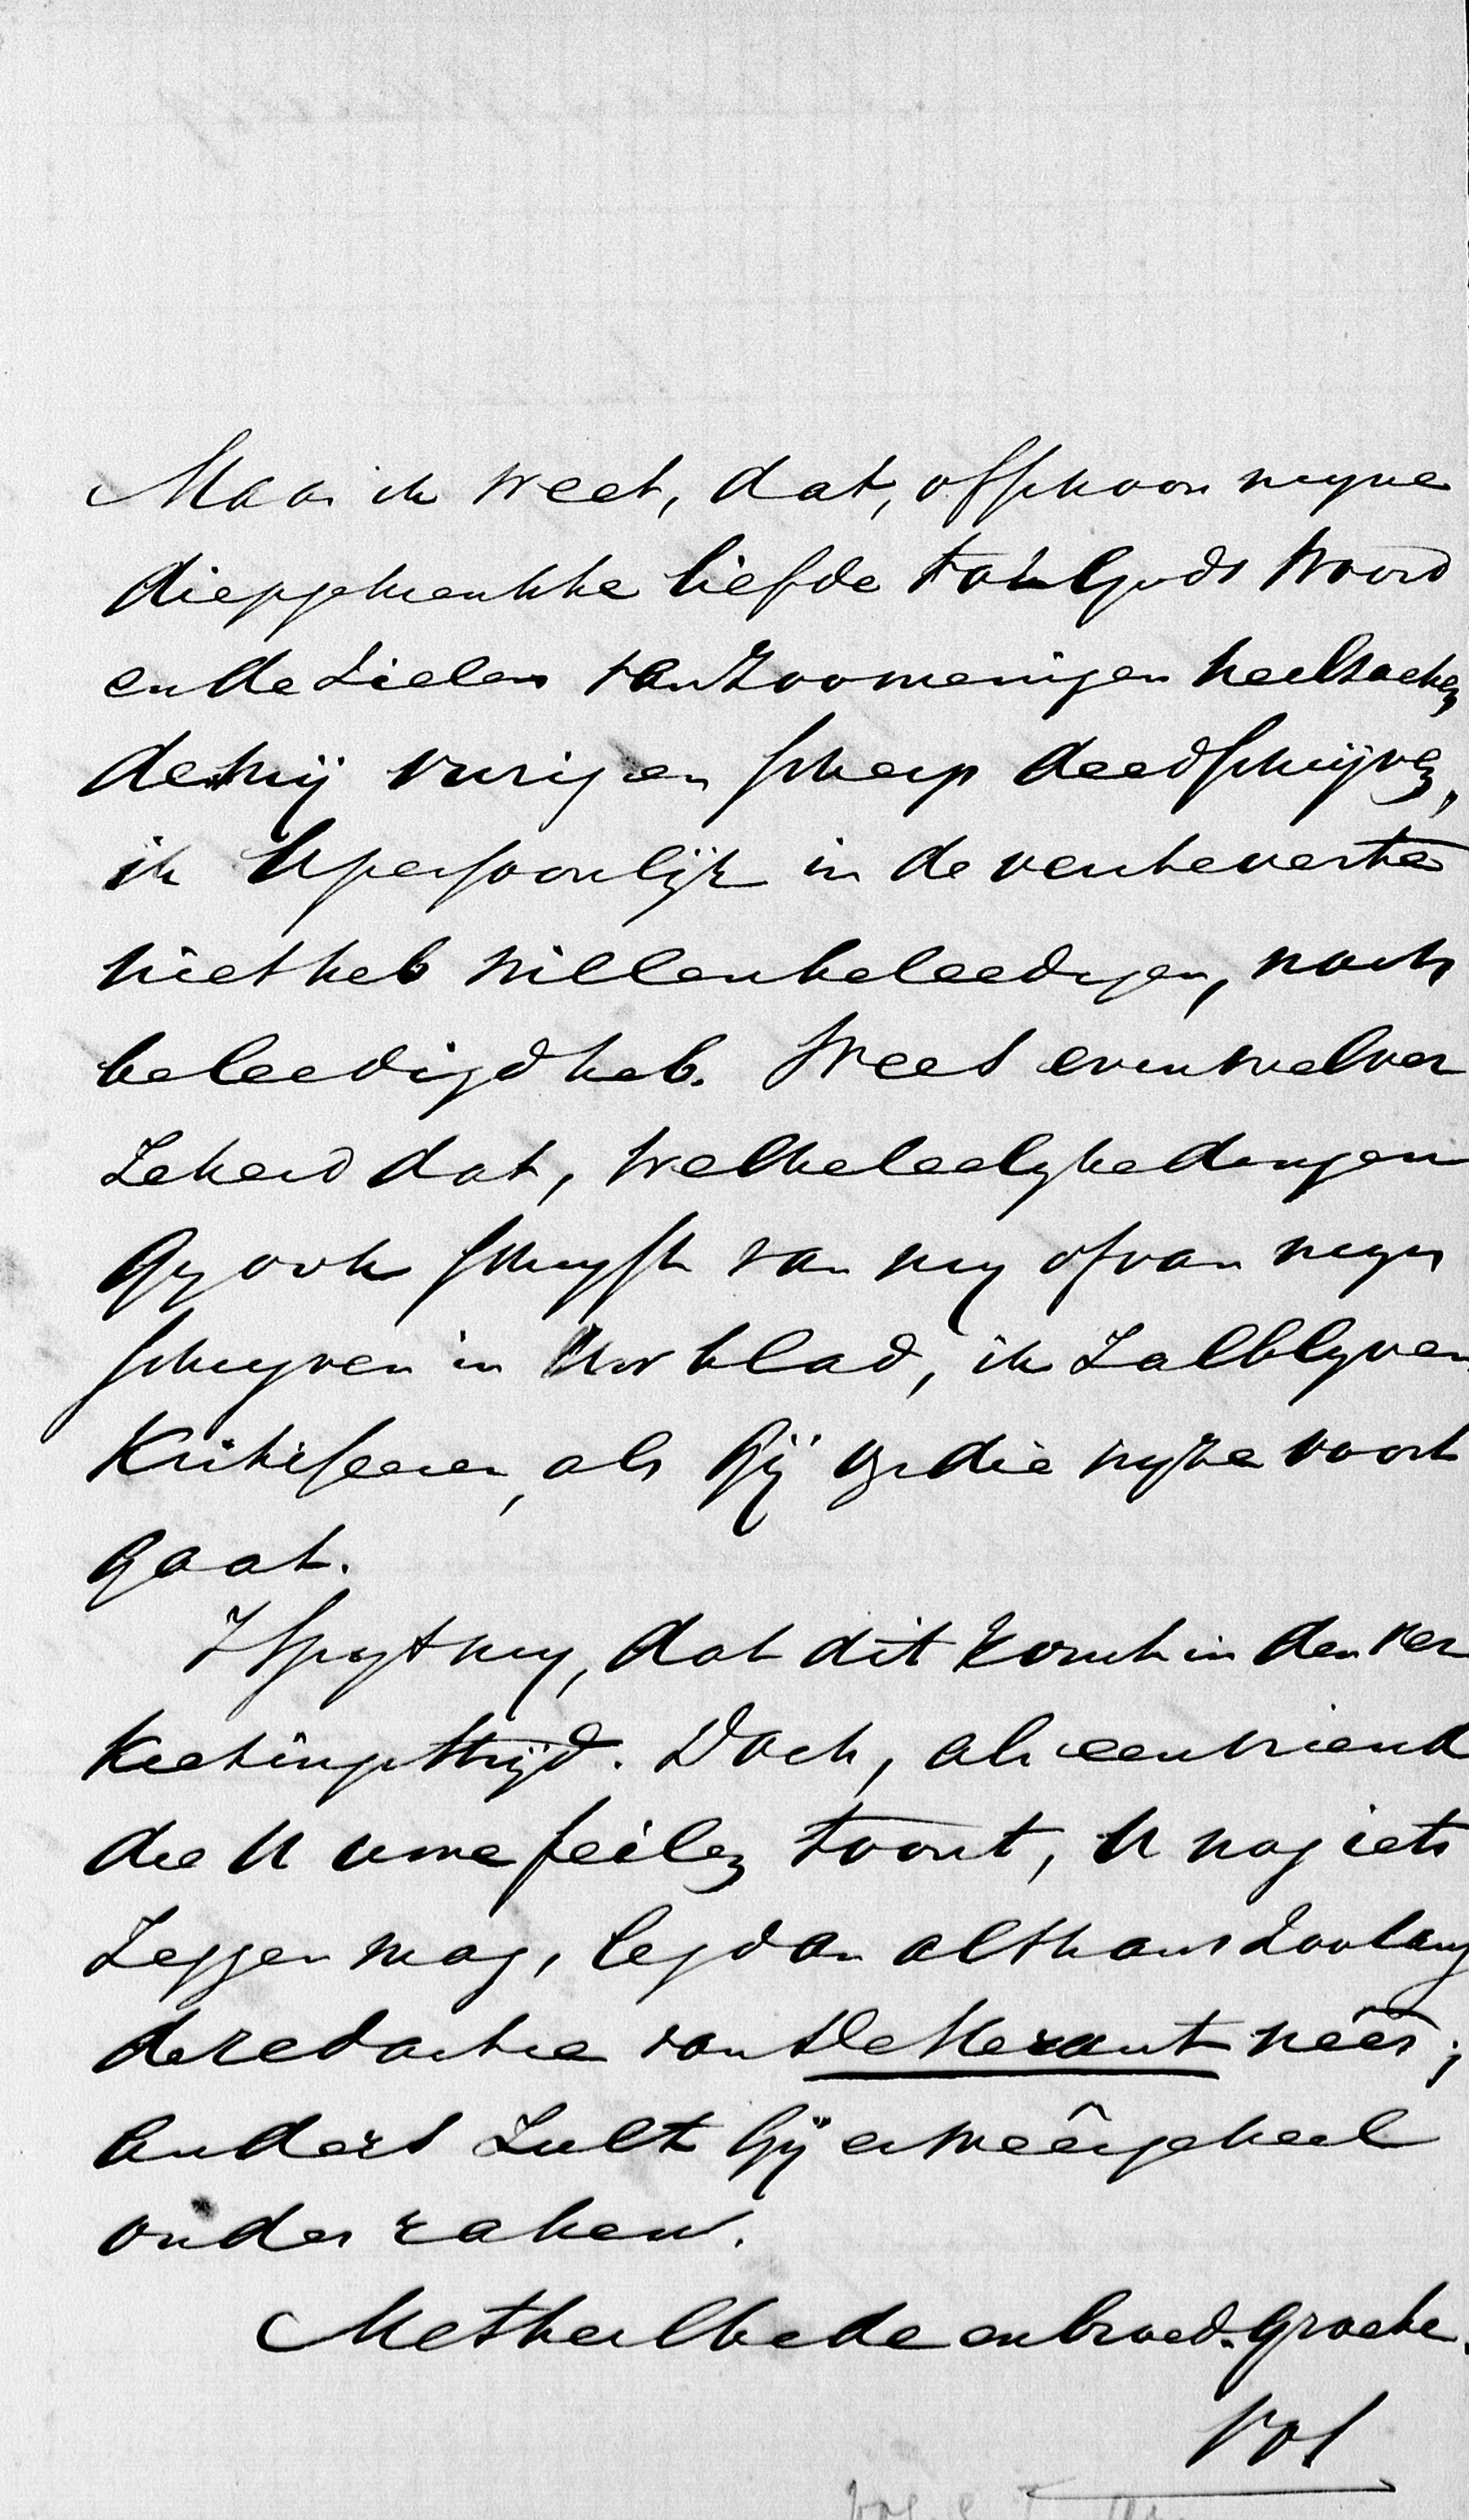 Maar ik weet, dat, ofschoon mijne
diepgekrenkte liefde tot Gods Woord
en de zielen van zoomenigen heilzoeken
de mij vurig en scherp deed schrijven,
ik U persoonlijk in de verste verte
niet heb willen beleedigen, noch
beleedigd heb. Wees evenwel ver
zekerd dat, welke leelykhedengen
Gy ook schryft van my of van myn
schryven in Uw blad, ik zal blyven
kritiseeren, als Gij op die wyze voort
gaat.
't Spyt my, dat dit komt in den ver
kiezingsstrijd. Doch, als een vriend
die U uwe feilen toont, U nog iets
zeggen mag, leg dan althans zoolang
de redactie van De Heraut neêr;
anders zult Gij er meê geheel
onder raken.
Met heilbede en broed. groete.
Vos